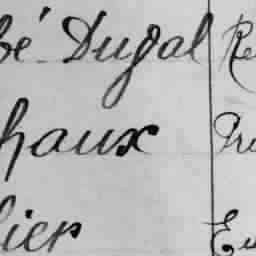 bé Dugal Re
haux Pr
lier Eu